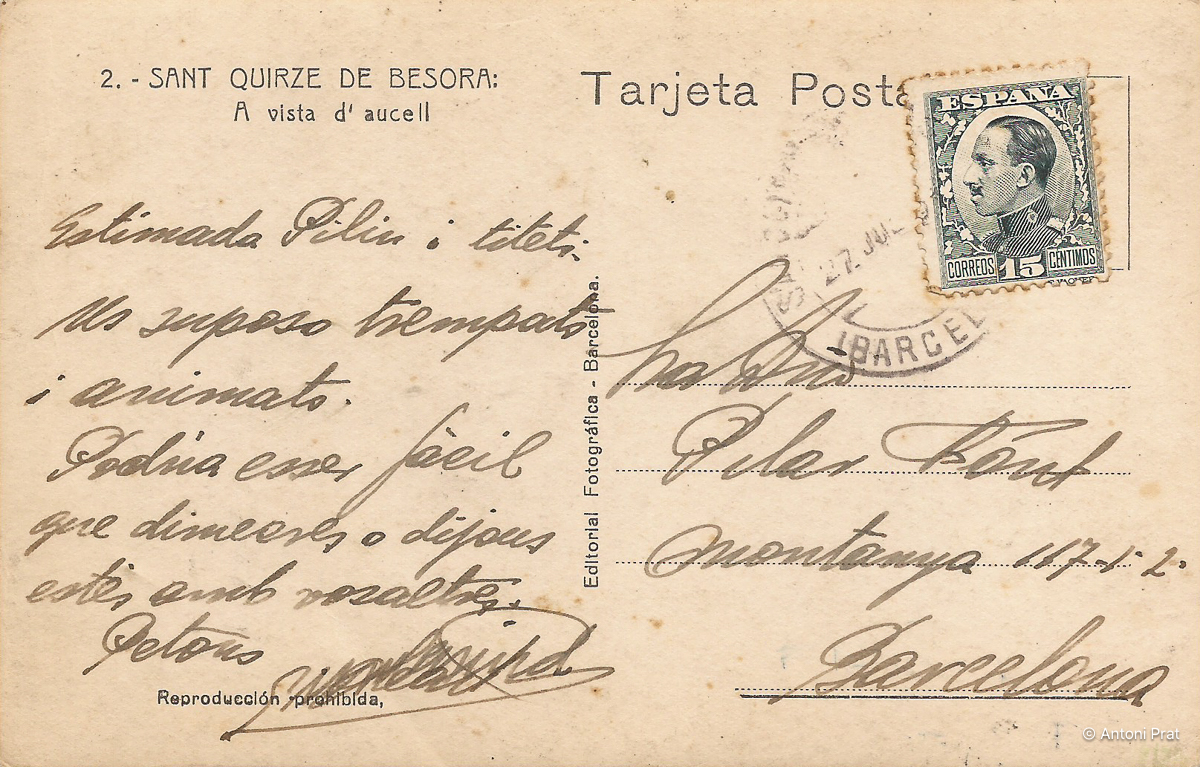 2. - SANT QUIRZE DE BESORA:
A vista d' aucell
Tarjeta Posta
ESPAÑA
CORREOS 15 CENTIMOS
27 JUL
(BARCEL
Estimada Pilin i titeti.
Us suposo trempats
i animats.
Podria esser fàcil
que dimecres o dijous
estés amb vosaltres.
Petons
Reproducción prohibida,
Editorial Fotográfica - Barcelona.
Pilar Font
Montanya 117-1-2.
Barcelona
© Antoni Prat